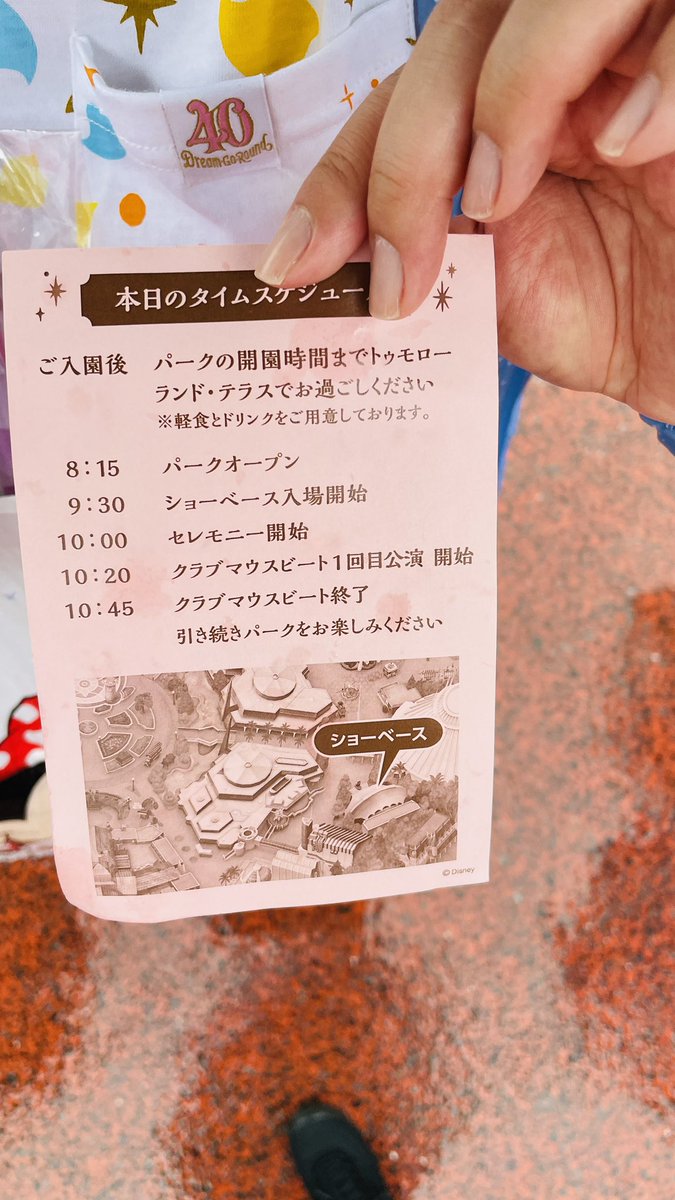 40
Dream-Go-Round
本日のタイムスケジュー
ご入園後 パークの開園時間までトゥモロー
ランド・テラスでお過ごしください
※軽食とドリンクをご用意しております。
8：15 パークオープン
9：30 ショーベース入場開始
10：00 セレモニー開始
10：20 クラブマウスビート1回目公演 開始
10：45 クラブマウスビート終了
引き続きパークをお楽しみください
ショーベース
©Disney